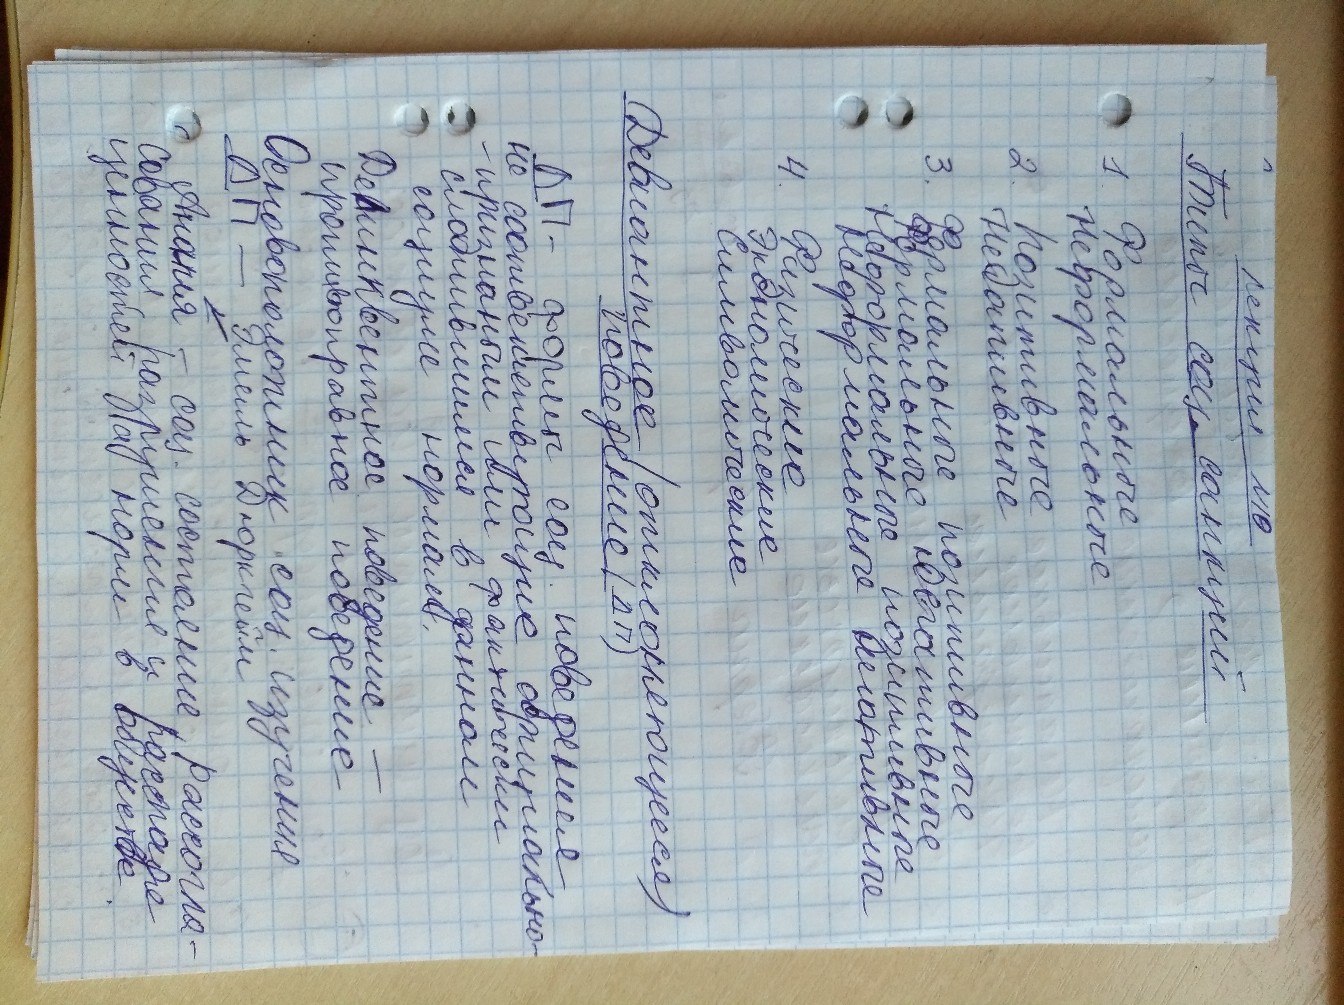 Лекция №10
Типы соц. санкций
1. Формальные
Неформальные
2. Позитивные
Негативные
3. Формальные позитивные
Формальные негативные
Неформальные позитивные
Неформальные негативные
4. Физические
Экономические
Символические
Девиантное (отклоняющееся)
поведение (ДП)
ДП - формы соц. поведения
не соответствующие официально-
-признаным или фактически
сложившимся в данном
социуме нормам.
Делинквентное поведение —
противоправное поведение
Основоположник соц. изучения
ДП — Эмиль Дюркгейм
Аномия — соц. состояние рассогла-
сования, разрушения и распада
ценностей и норм в обществе.